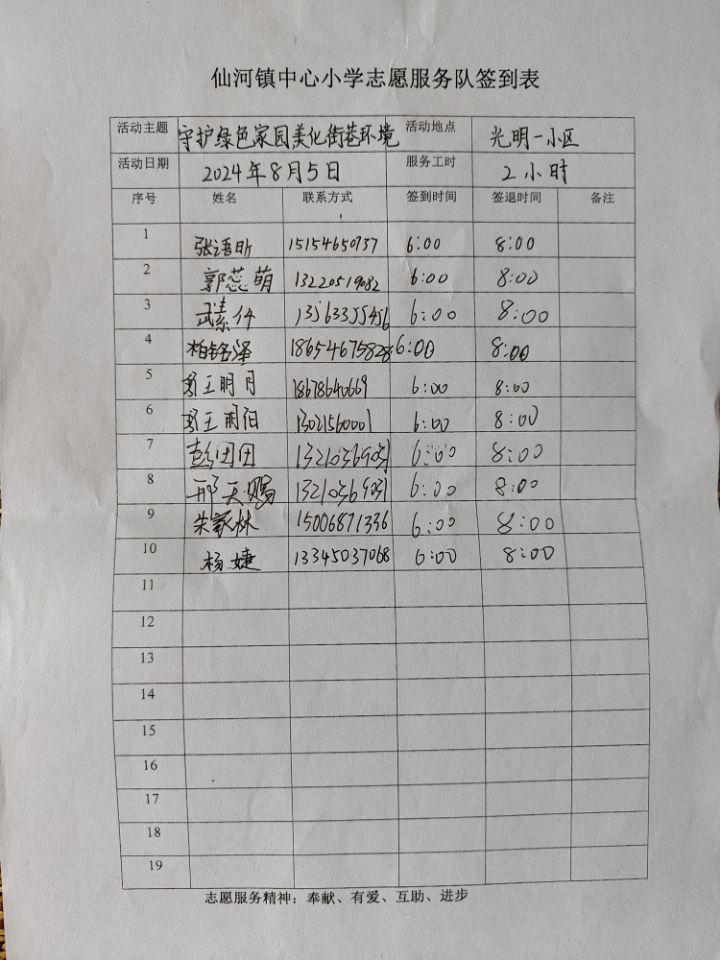 仙河镇中心小学志愿服务队签到表
活动主题 守护绿色家园美化街巷环境 活动地点 光明一小区
活动日期 2024年8月5日 服务工时 2小时
序号 姓名 联系方式 签到时间 签退时间 备注
1 张语昕 15154650737 6:00 8:00
2 郭蕊萌 13220519082 6:00 8:00
3 武素仟 13563355456 6:00 8:00
4 柏铭泽 18654675828 6:00 8:00
5 王明月 18678640669 6:00 8:00
6 王雨阳 13021560001 6:00 8:00
7 彭团团 6:00 8:00
8 邢天赐 6:00 8:00
9 朱家林 15006871336 6:00 8:00
10 杨婕 13345037068 6:00 8:00
11
12
13
14
15
16
17
18
19
志愿服务精神：奉献、有爱、互助、进步